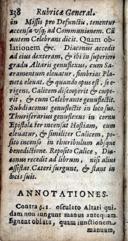 238 Rubricæ General.
in Missis pro Defunctis, tenentur
accensa usq; ad Communionem. Cū
autem Celebrans dicit. Quam ob-
lationem &c. Diaconus accedit
ad eius dexteram, & ibi in superiori
gradu Altaris genuflectit, cum Sa-
cramentum eleuatur, fimbrias Pla-
netæ eleuat, & quando opus est, se e-
rigens, Calicem discooperit & coope-
rit, & cum Celebrante genuflectit.
Subdiaconus genuflectit in loco suo.
Thuriferarius genuflexus in cornu
Epistolæ ter incensat Hostiam, cum
eleuatur, & similiter Calicem, po-
sito incenso in thuribulum absque
benedictione. Reposito Calice, Dia-
conus recedit ad librum, nisi alius
assistat. Cæteri surgunt, & stant in
locis suis.
ANNOTATIONES.
Contra osculato Altari qui-
dam non iungunt manus antequam
signent oblata, quam iunctionem
manuum